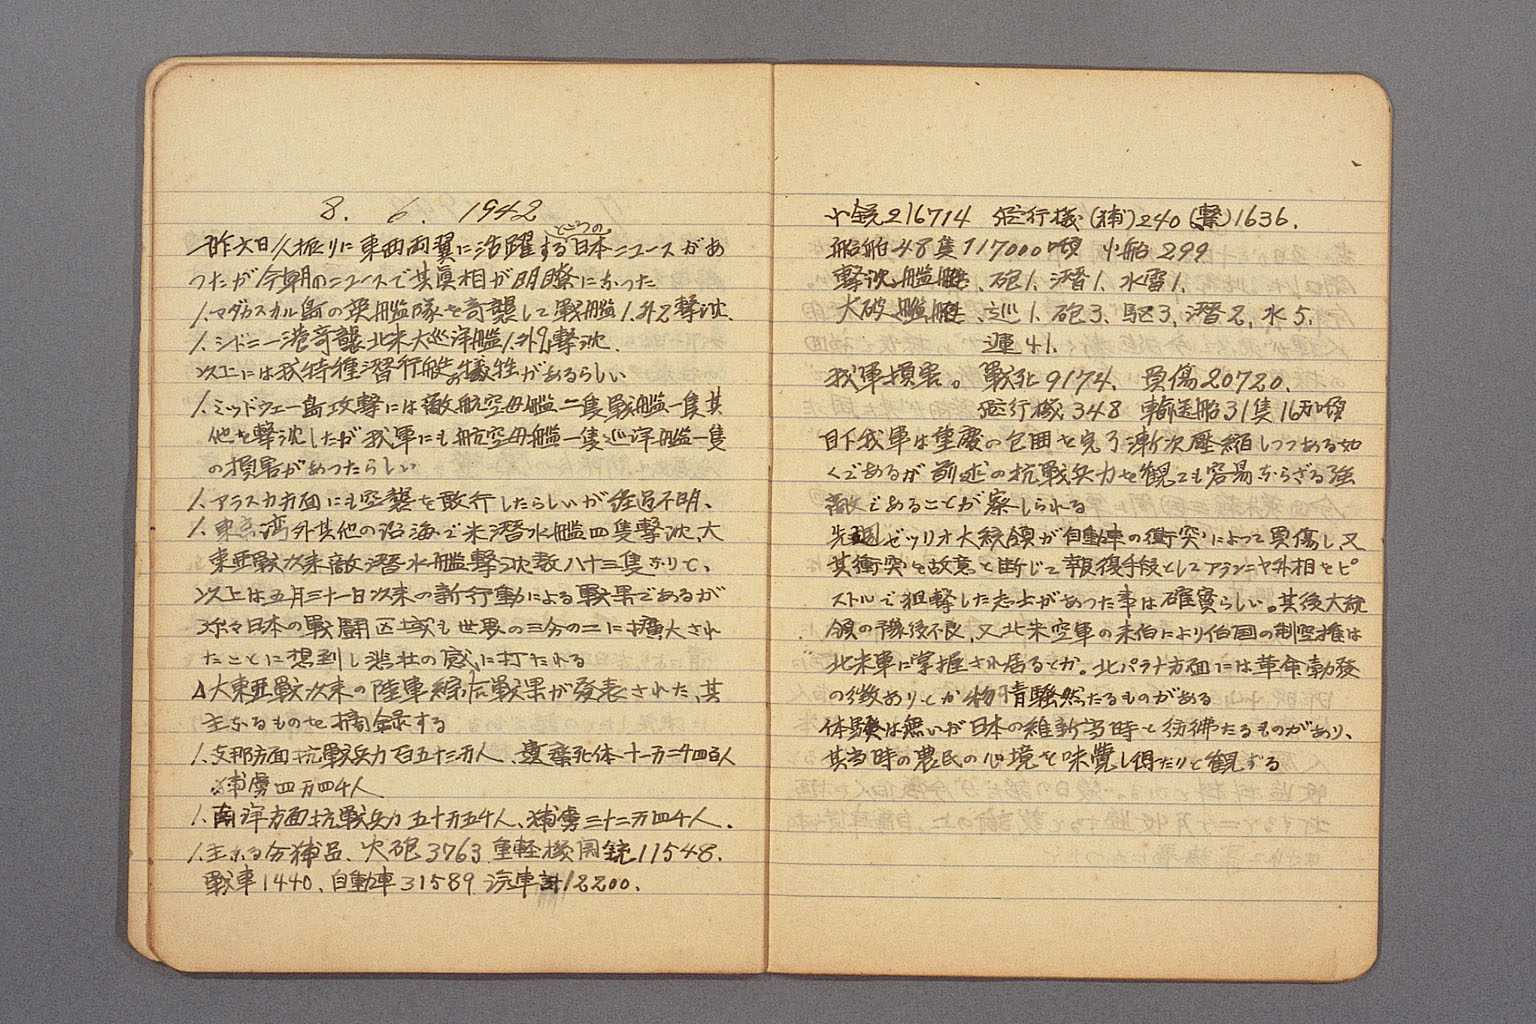 8. 6. 1942
昨六日久振りに東西両翼に活躍するところの日本ニュースがあ
つたが今朝のニュースで其眞相が明瞭になつた
1.マダカスカル島の英艦隊を奇襲して戦艦1.外2撃沈.
1.シドニー港奇襲 北米大巡洋艦1.外9撃沈.
以上には我特種潜行艇の犠牲があるらしい
1.ミッドウェー島攻撃には敵航空母艦二隻戦艦一隻其
他を撃沈したが我軍にも航空母艦一隻巡洋艦一隻
の損害があつたらしい
1.アラスカ方面にも空襲を敢行したらしいが経過不明、
1.東京湾外其他の沿海で米潜水艦四隻撃沈、大
東亜戦以来敵潜水艦撃沈数八十三隻なりと、
以上は五月三十一日以来の新行動による戦果であるが
弥々日本の戦闘区域も世界の三分の二に擴大され
たことに想到し悲壮の感に打たれる
△大東亜戦以来の陸軍綜合戦果が發表された、其
主なるものを摘録する
1.支那方面抗戦兵力百五十三万人、遺棄死体十一万二千四百人
捕虜四万四千人
1.南洋方面抗戦兵力五十万五千人、捕虜三十二万四千人.
1.主なる分捕品、火砲3763 重軽機関銃11548.
戦車1440、自動車31589 汽車計12200.
小銃216714 飛行機(捕)240(撃)1636.
船舶48隻117000噸 小船299
撃沈艦艇、砲1. 潜1. 水雷1.
大破艦艇、巡1. 砲3. 駆3. 潜2, 水5.
運41.
我軍損害。戦死9174、負傷20720.
飛行機348 輸送船31隻16万噸
目下我軍は重慶の包囲を完了漸次壓縮しつつある如
くであるが前述の抗戦兵力を観ても容易ならざる強
敵であることが察しられる
先週ゼッリオ大統領が自動車の衝突によつて負傷し、又
其衝突を故意と断じて報復手段としてアランニヤ外相をピ
ストルで狙撃した志士があつた事は確實らしい。其後大統
領の予後不良、又北米空軍の来伯により伯国の制空権は
北米軍に掌握され居るとか。北パラナ方面には革命勃發
の徴ありとか物情騒然たるものがある
体験は無いが日本の維新当時と彷彿たるものがあり、
其当時の農民の心境を味覺し得たりと観ずる